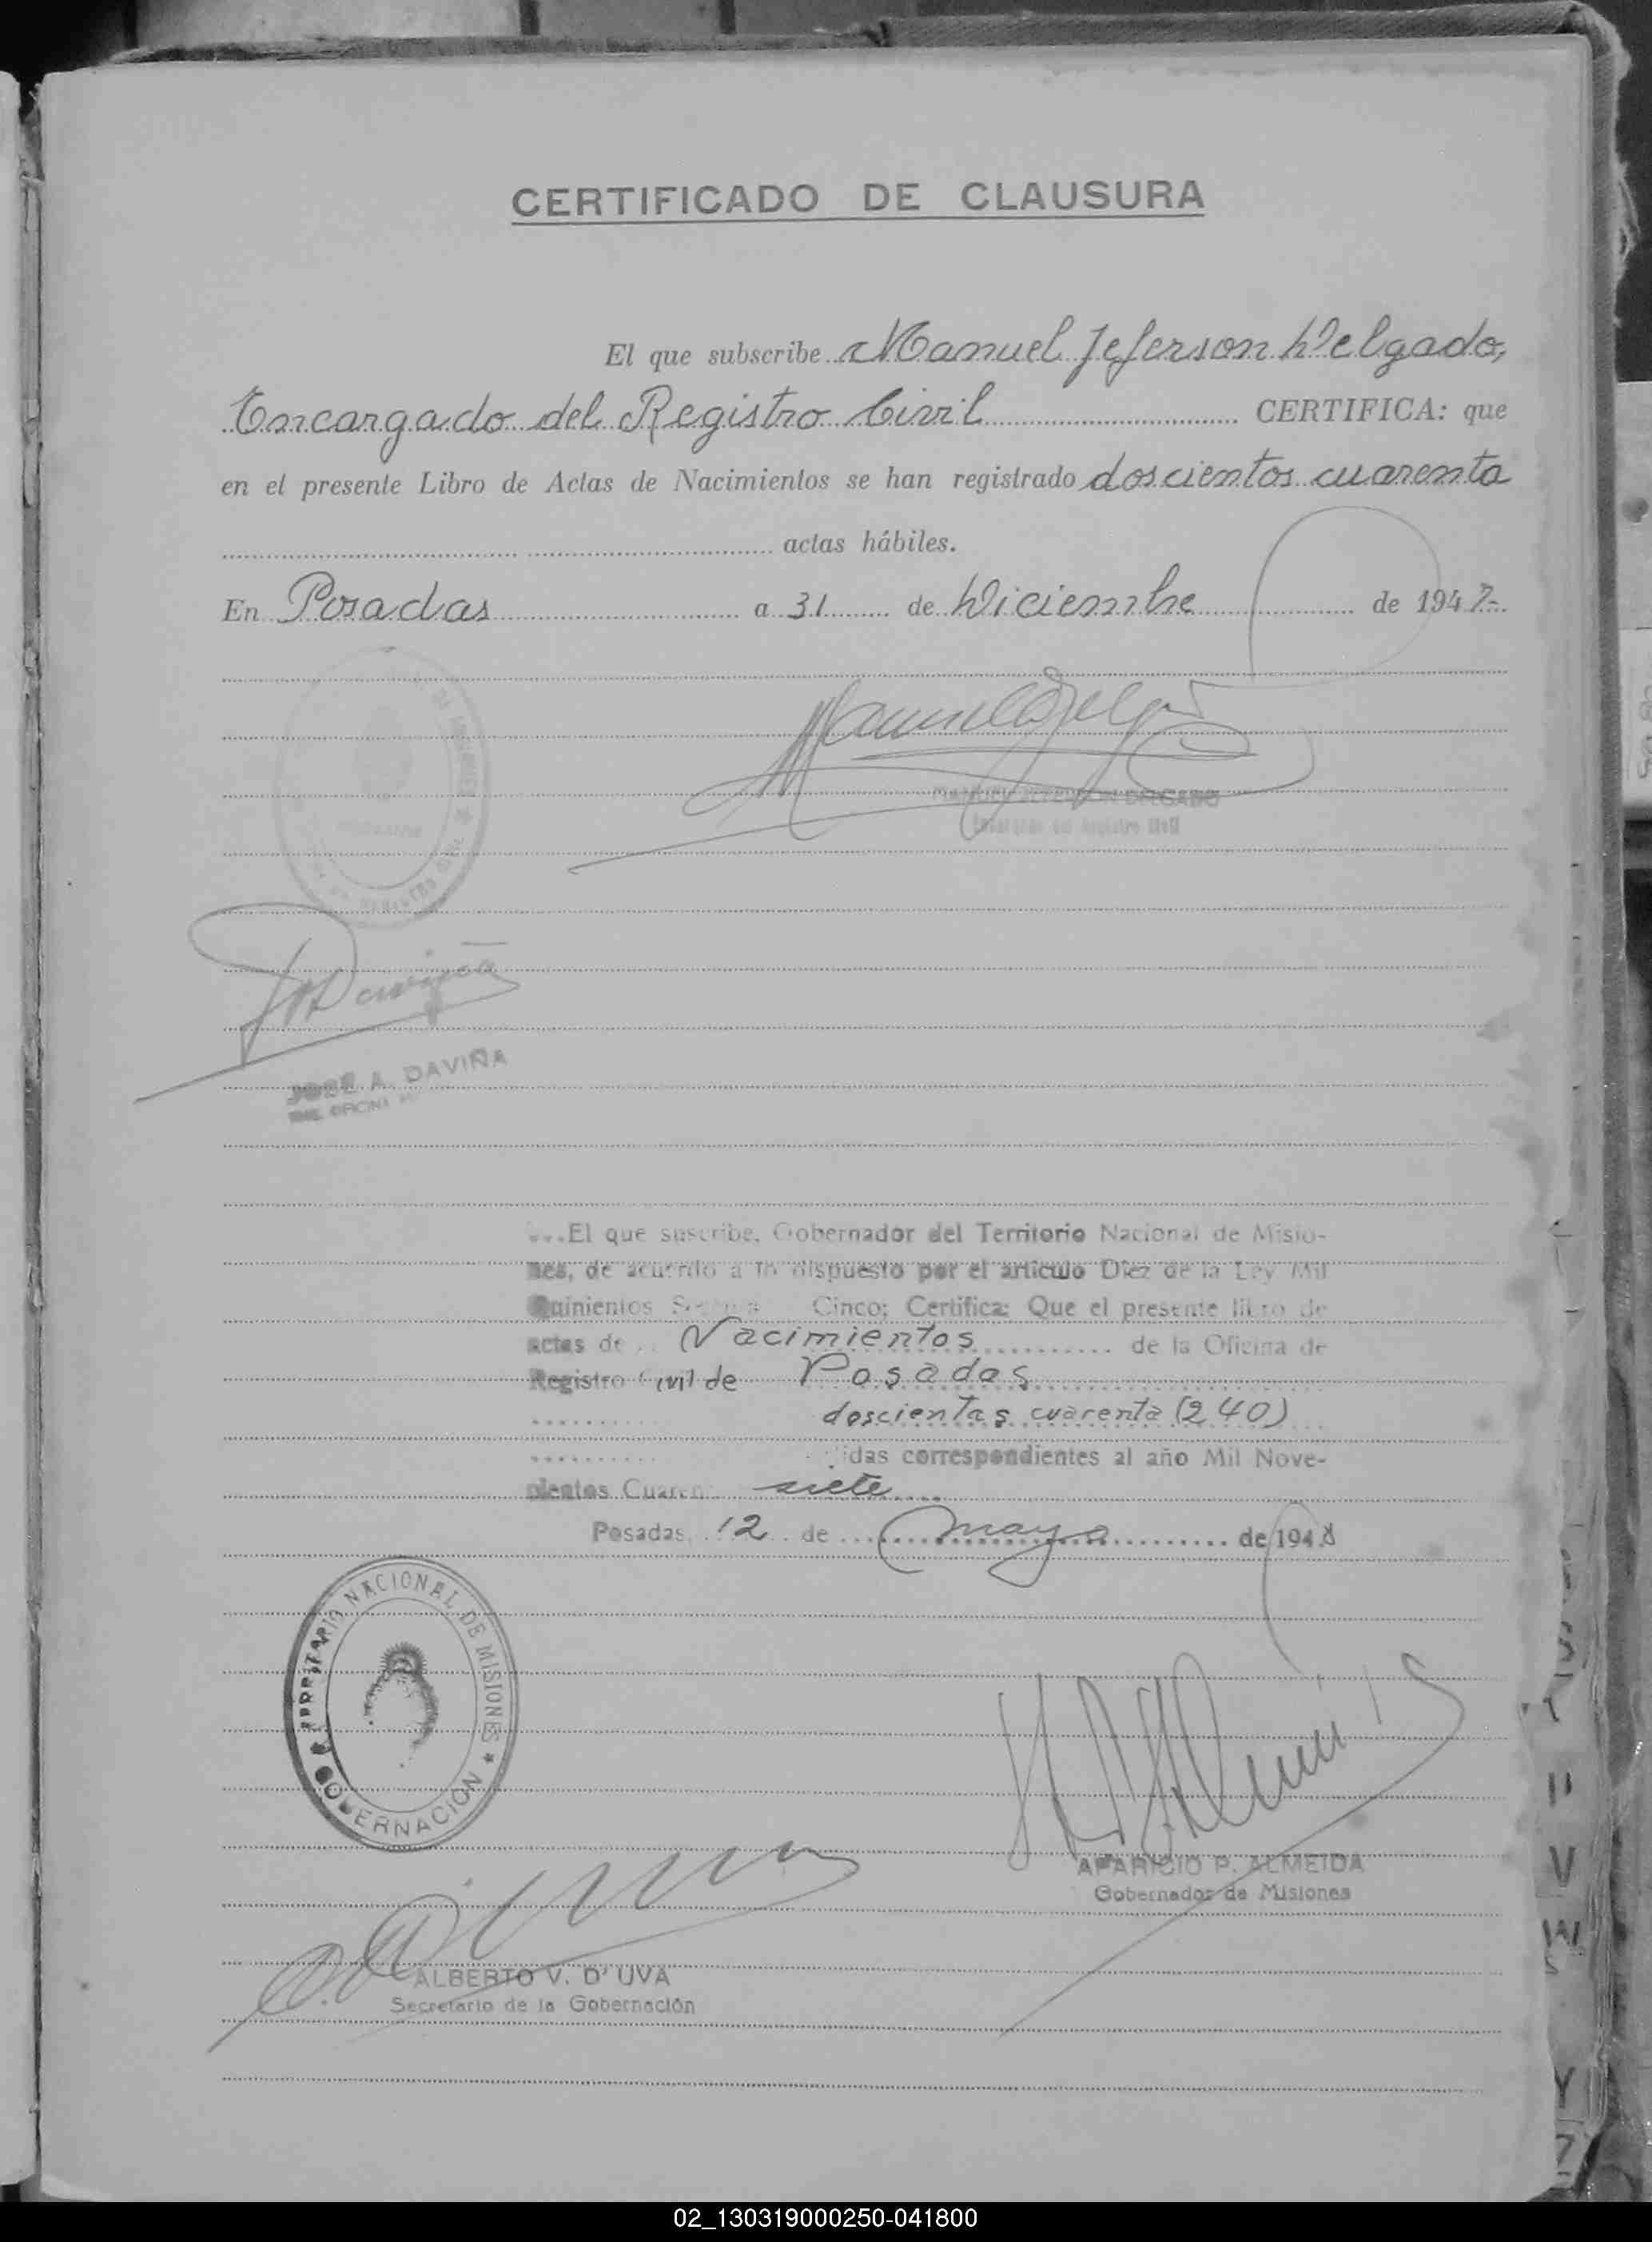 CERTIFICADO DE CLAUSURA
El que subscribe Manuel Jeferson Delgado,
Encargado del Registro Civil CERTIFICA: que
en el presente Libro de Actas de Nacimientos se han registrado doscientos cuarenta
actas hábiles.
En Posadas a 31 de Diciembre de 1947-
MANUEL JEFERSON DELGADO
Encargado del Registro Civil
JOSE A. DAVIÑA
OFICINA
El que suscribe, Gobernador del Territorio Nacional de Misio-
nes, de acuerdo a lo dispuesto por el artículo Diez de la Ley Mil
Quinientos Cinco; Certifica: Que el presente libro de
actas de Nacimientos de la Oficina de
Registro Civil de Posadas
doscientas cuarenta (240)
idas correspondientes al año Mil Nove-
cientos Cuaren siete
Posadas, 12 de mayo de 1948
TERRITORIO NACIONAL DE MISIONES ★
GOBERNACIÓN
APARICIO P. ALMEIDA
Gobernador de Misiones
ALBERTO V. D'UVA
Secretario de la Gobernación
V
W
Y
Z
02_130319000250-041800